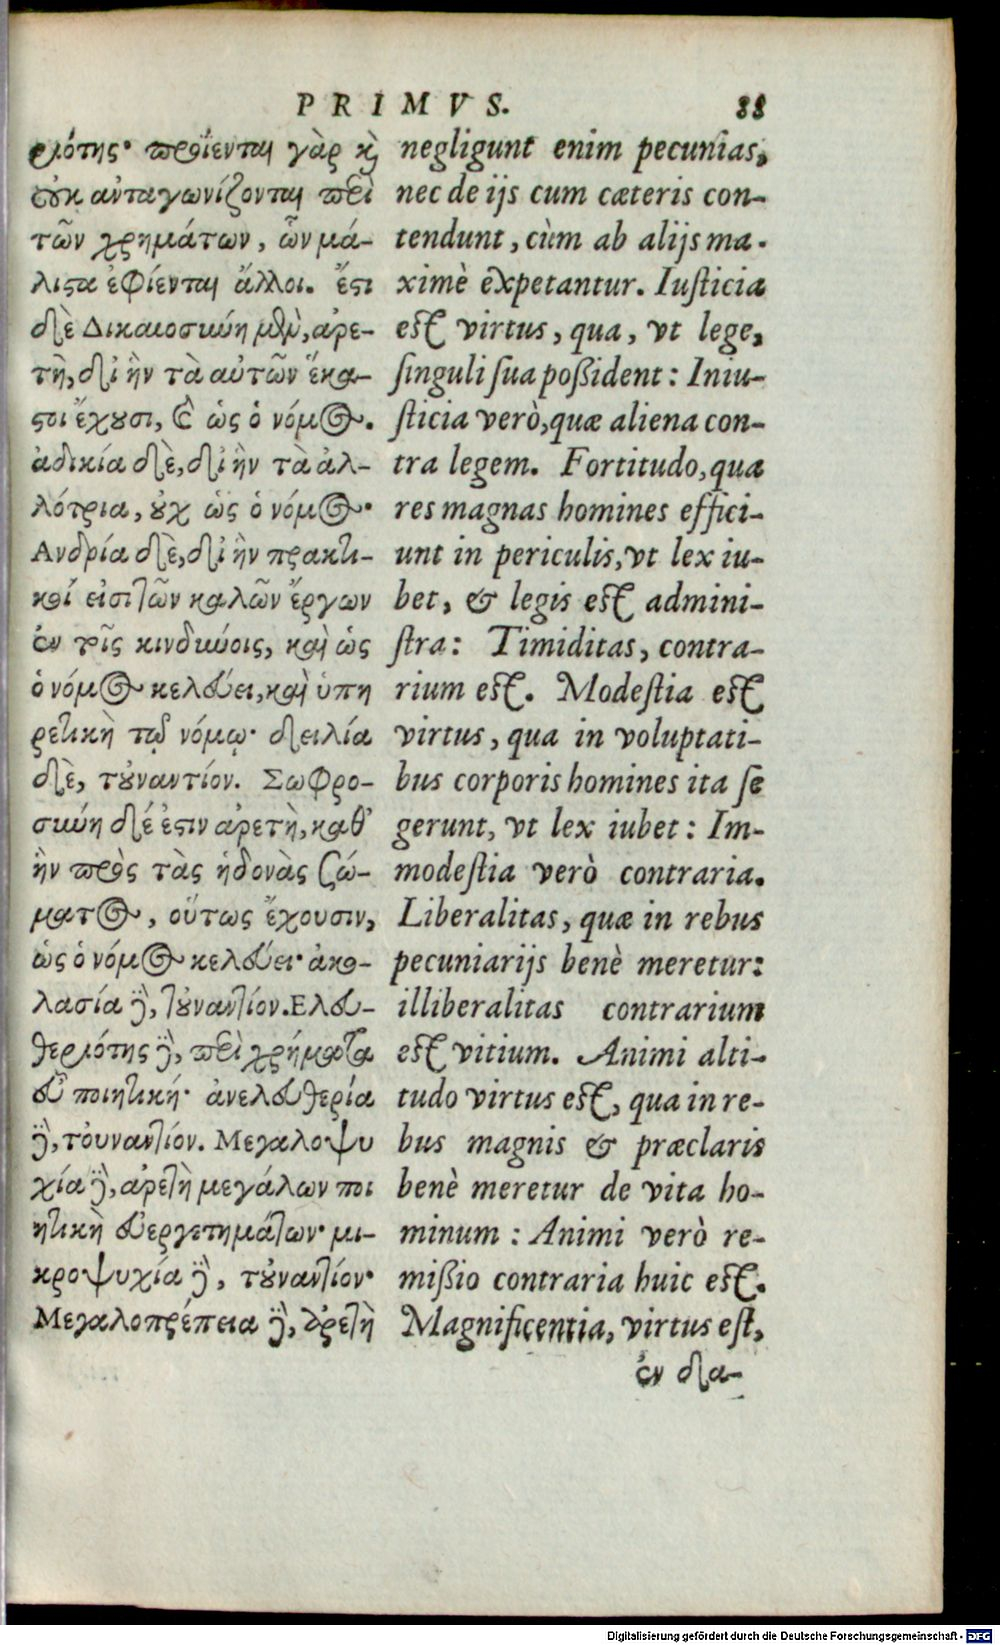 PRIMVS. 88
ριότης· προΐενται γὰρ κὶ
οὐκ ἀνταγωνίζονται περὶ
τῶν χρημάτων, ὧν μά-
λιστα ἐφίενται ἄλλοι. ἔστι
δὲ Δικαιοσύνη μὲν, ἀρε-
τὴ, δι' ἣν τὰ αὐτῶν ἕκα-
στοι ἔχουσι, καὶ ὡς ὁ νόμος.
ἀδικία δὲ, δι' ἣν τὰ ἀλ-
λότρια, οὐχ ὡς ὁ νόμος·
Ανδρία δὲ, δι' ἣν πρακτι-
κοί εἰσι τῶν καλῶν ἔργων
ἐν τοῖς κινδύνοις, καὶ ὡς
ὁ νόμος κελεύει, καὶ ὑπη
ρετικὴ τῷ νόμῳ· δειλία
δὲ, τοὐναντίον. Σωφρο-
σύνη δέ ἐστιν ἀρετὴ, καθ'
ἣν πρὸς τὰς ἡδονὰς σώ-
ματος, οὕτως ἔχουσιν,
ὡς ὁ νόμος κελεύει· ἀκο-
λασία δὲ, τοὐναντίον. Ελευ-
θεριότης δὲ, περὶ χρήματα
εὖ ποιητική· ἀνελευθερία
δὲ, τοὐναντίον. Μεγαλοψυ
χία δὲ, ἀρετὴ μεγάλων ποι
ητικὴ εὐεργετημάτων· μι-
κροψυχία δὲ, τοὐναντίον·
Μεγαλοπρέπεια δὲ, ἀρετὴ
negligunt enim pecunias,
nec de ijs cum cæteris con-
tendunt, cùm ab alijs ma-
ximè expetantur. Iusticia
est virtus, qua, vt lege,
singuli sua possident: Iniu-
sticia verò, quæ aliena con-
tra legem. Fortitudo, qua
res magnas homines effici-
unt in periculis, vt lex iu-
bet, & legis est admini-
stra: Timiditas, contra-
rium est. Modestia est
virtus, qua in voluptati-
bus corporis homines ita se
gerunt, vt lex iubet: Im-
modestia verò contraria.
Liberalitas, quæ in rebus
pecuniarijs benè meretur:
illiberalitas contrarium
est vitium. Animi alti-
tudo virtus est, qua in re-
bus magnis & præclaris
benè meretur de vita ho-
minum: Animi verò re-
missio contraria huic est.
Magnificentia, virtus est,
ἐν δα-
Digitalisierung gefördert durch die Deutsche Forschungsgemeinschaft - DFG